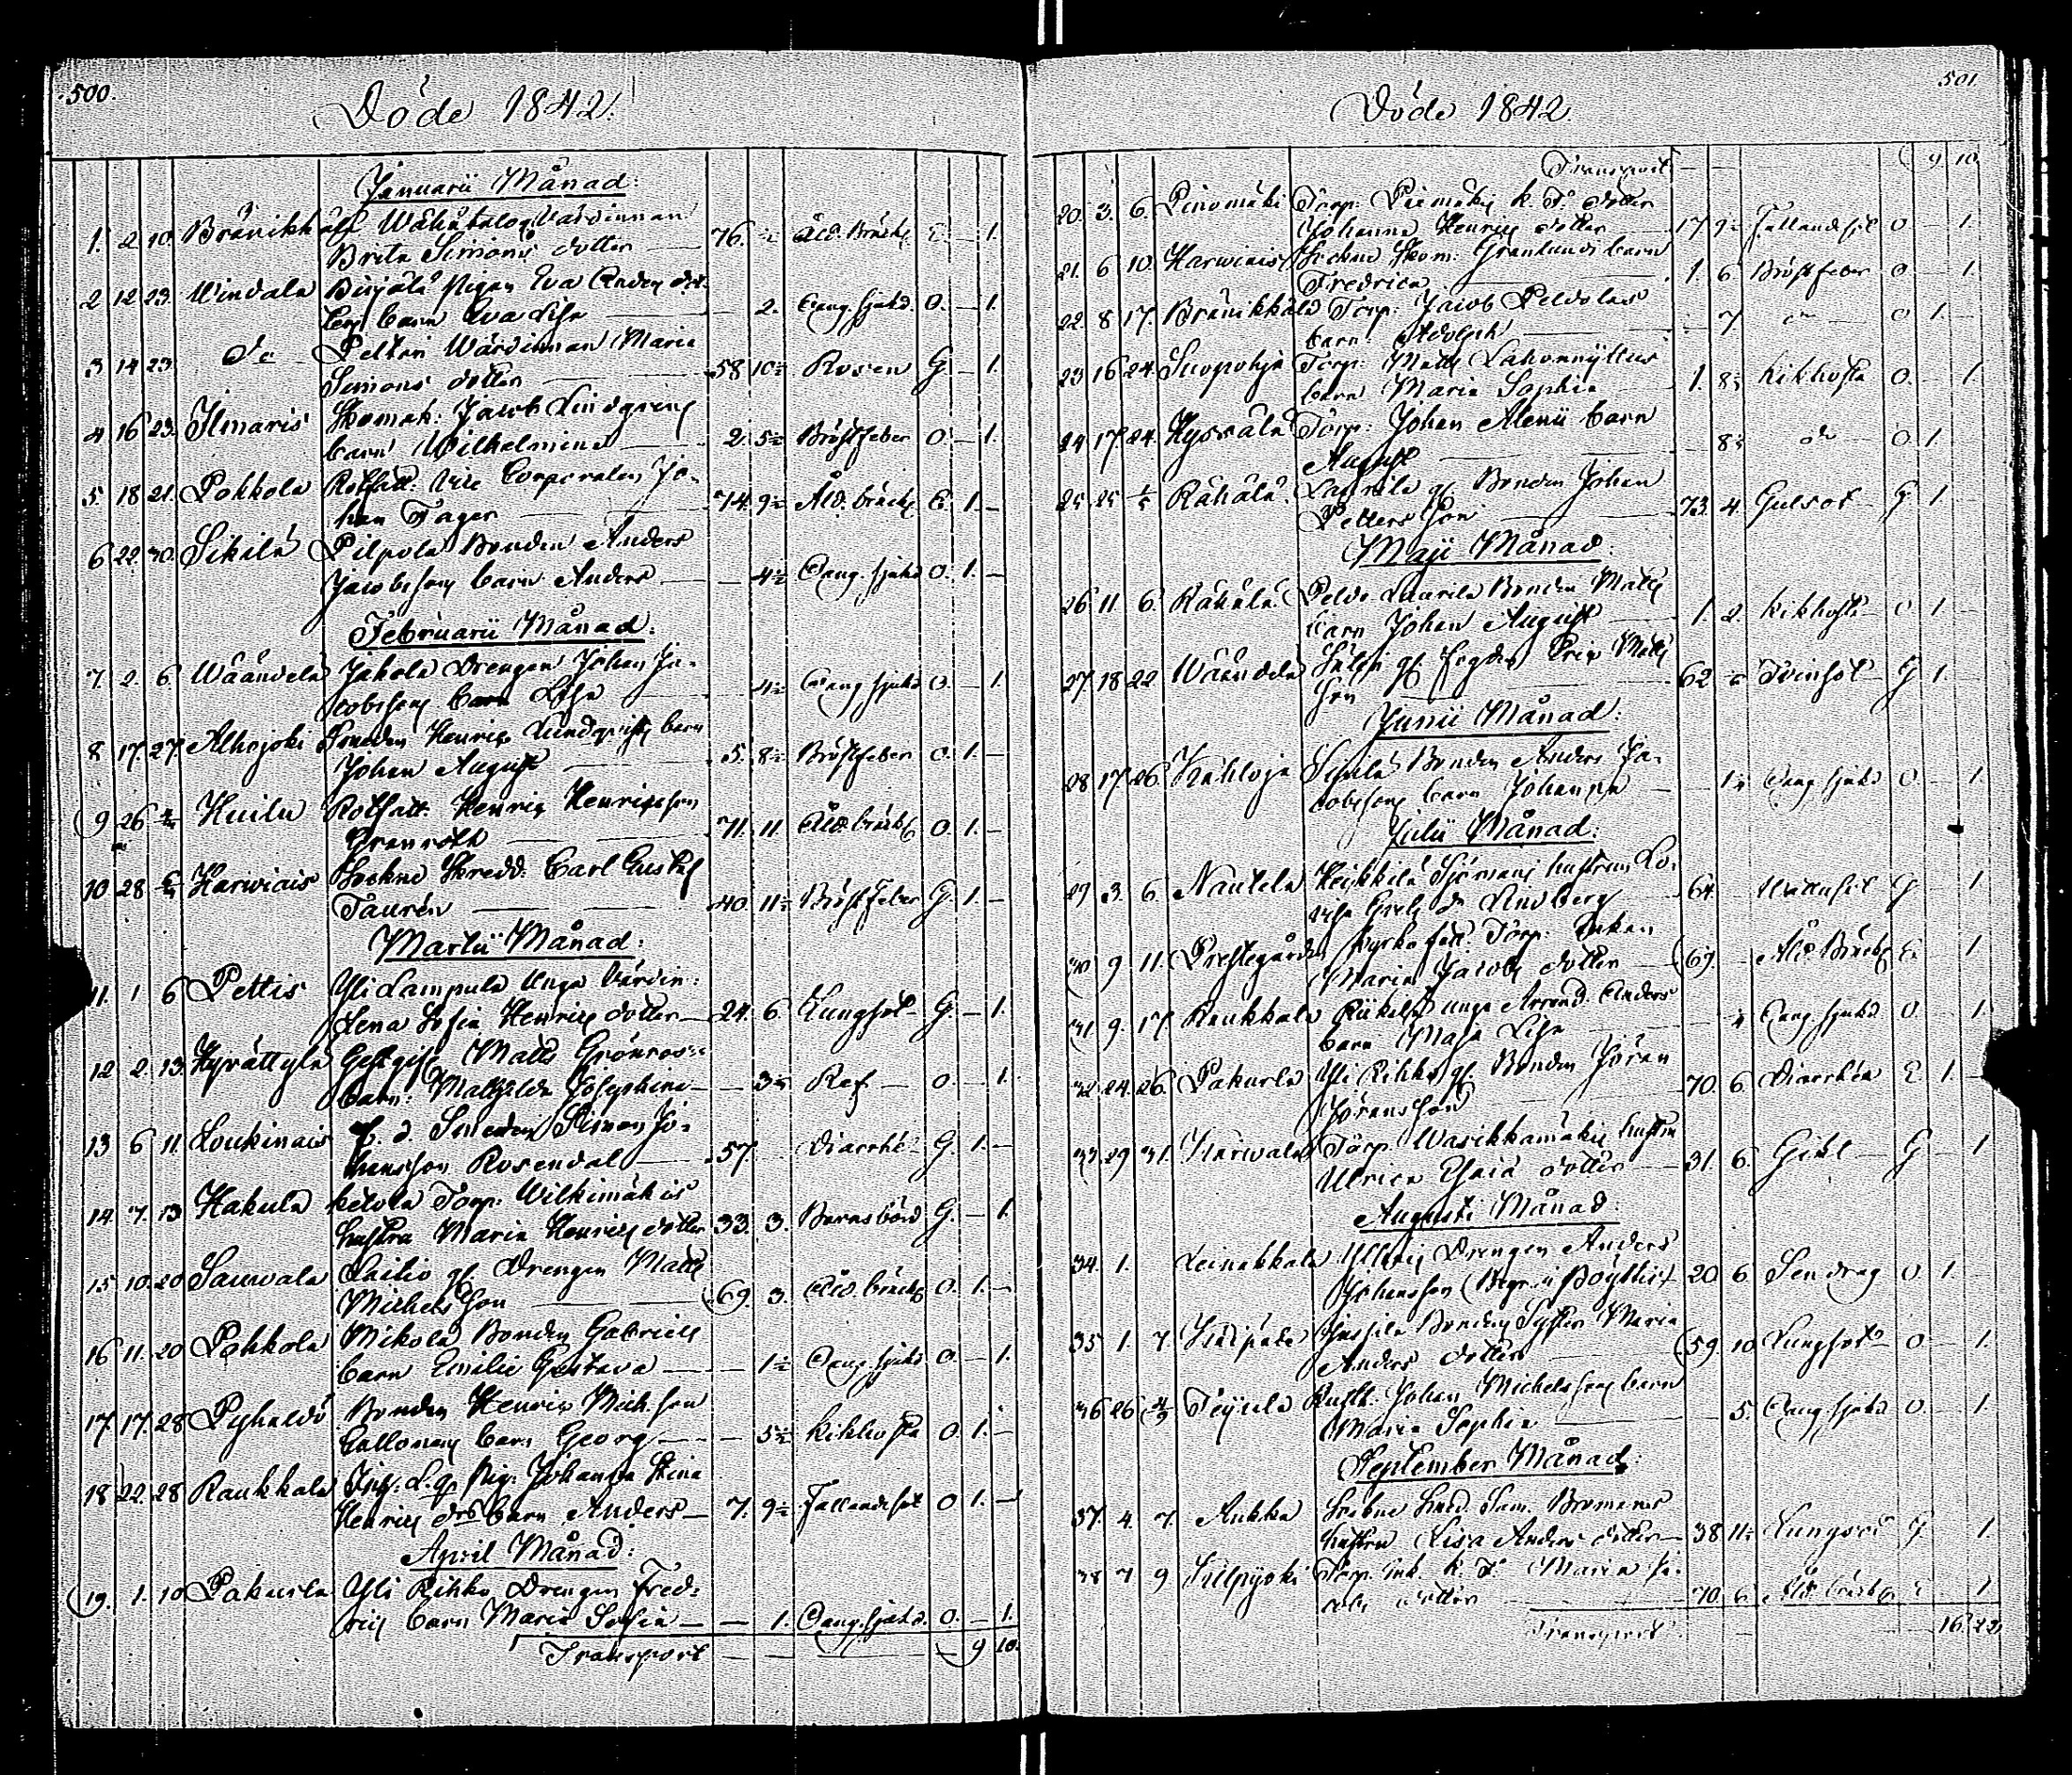 500.
Döde 1842.
Januarii Månad:
1. 2 10. Bränikkälä Wähätalo Värdinnan
Brita Simons dotter 76. Åld. Bräckl E. – 1.
2 12 23. Windala Pigan Eva Anders dot-
ters barn Eva Lisa – 2. Oang. sjukd. O. – 1.
3 14 23. Do Pelttari Wärdinnan Maria
Simons dotter 58 10 Rosen G – 1.
4 16 23. Ilmaris Skomak: Jacob Lindgrens
barn Wilhelmina 2. 5 Bröstfeber O – 1.
5 18 21. Pokkola Rotfatt. Vice Corporalen Jo-
han Fager 74. 9 Åld. bräckl E. 1. –
6 22. 30. Sikilä Pilpola Bonden Anders
Jacobssons barn Anders – 4 Oang. sjukd O. 1. –
Februarii Månad:
7. 2. 6. Wäändelä Jakola Drengen Johan Ja-
cobssons barn Lisa 4 Oang sjukd O. – 1.
8 17. 27. Alhojoki Smeden Henrik Lundqvists barn
Johan August 5. 8 Bröstfeber O. 1. –
9 26 Huilu Rotfatt. Henrik Henriksson
Granroth 71. 11 Åld. bräckl O. 1. –
10 28 Harwiais Sockne Skredd. Carl Gustaf
Taurén 40. 11 Bröstfeber G. 1. –
Martii Månad:
11. 1 6 Pettis Yli Lampula Unga Värdin:
Lena Sofia Henriks dotter 24. 6 Lungsot G. – 1.
12 2. 13. Hyrättylä Gestgif. Matts Grönroos
barn: Mathilda Josephina – 3 Ref – O. – 1.
13 6 11. Loukinais f. d. Smeden Simon Jo-
hansson Rosendal 57. Diarrhé G. 1. –
14. 7. 13 Hakula Torp: Wilkimäkis
hustru Maria Henriks dotter 33. 3. Barnsbörd G. – 1.
15 10. 20 Sauvala Lailio gl. Drengen Matts
Michelsson 69. 3. Åld. bräckl O. 1. –
16 11. 20 Pokkola Mikola Bonden Gabriels
barn Emilie Gustava 1 Oang. sjukd O. – 1.
17. 17. 28 Pyheldö Bonden Henrik Mich.son
Callonens barn Georg 5 Kikhosta O. 1. –
18 22. 28 Raukkala Pig: Johanna Stina
Henriks drs barn Anders 7. 9 Fallandesot O 1. –
April Månad:
19. 1. 10 Pakurla Yli Rikko Drengen Fred-
riks barn Maria Sofia – 1. Oang. sjukd. O. – 1.
Transport – 9 10.
501.
Döde 1842.
Transport – 9 10.
20. 3. 6. Pinomäki Torp: k. Fs dotter
Johanna Henriks dotter 17 9 Fallandesot O – 1.
21. 6 10. Harwiais Sockne Skom: Granlunds barn
Fredrica 1. 6 Bröstfeber O – 1.
22. 8 17. Bränikkälä Torp: Jacob Peldolas
barn Adolph 7 do O 1.
23 16 24. Suopohja Torp: Matts Lahonnyttus
barn Maria Sophia 1. 8 Kikhosta O. – 1
24 17. 24. Torp: Johan Alenii barn
August 8 do O. 1.
25. 25 Rähälä Laurila gl. Bonden Johan
Pettersson 73. 4 Gulsot G 1.
Maji Månad:
26 11. 6. Rähälä Peldo Laurila Bonden Matts
barn Johan August 1. 2. Kikhosta O. 1.
27. 18 22 Wäändelä gl. Eric Matts
son 62 Tvinsot G 1.
Junii Månad:
28 17. 26. Kahloja Seppilä Bonden Anders Ja-
cobssons barn Johanna 1 Oang sjukd O 1
Julii Månad:
29 3. 6. Nautela Heikkilä Sjömans hustrun Lo-
visa Lindberg 64. Wattusot G 1
30 9 11. Prestegården Kyrko fatt. Torp. Enkan
Maria Jacobs dotter 69. Åld. Bräckl E 1
31 9. 17. Raukkala unga Anders
barn Maja Lisa Oang. sjukd O. 1
32. 24. 26. Pakurla Yli Rikko gl. Bonden Jöran
Jöransson 70. 6 Diarrhéa E. 1. –
33. 29 31. Karwala Torp: Warikkamäkis hustru
Ulrica Esaiæ dotter 31. 6. Gikt G 1
Augusti Månad:
34. 1. Leinakkala Drengen Anders
Johansson (Begr. i Pöyttis) 20. 6. Sendrag O 1.
35 1. 7. Bonden Syster Maria
Anders dotter 59. 10. Lungsot O 1.
36 26 Teijula Rusth. Johan Michelssons barn
Maria Sophia 5. Oang. sjukd O 1.
September Månad:
37. 4. 7. Aukka Sockne Smed. Sam. Bromans
hustru Lisa Anders dotter 38 11 Lungsot G 1.
38 7 9 Torp. Enk. K. F. Maria Ja-
cobs dotter 70. 6 Åld. bräckl E 1
Transport 16. 22